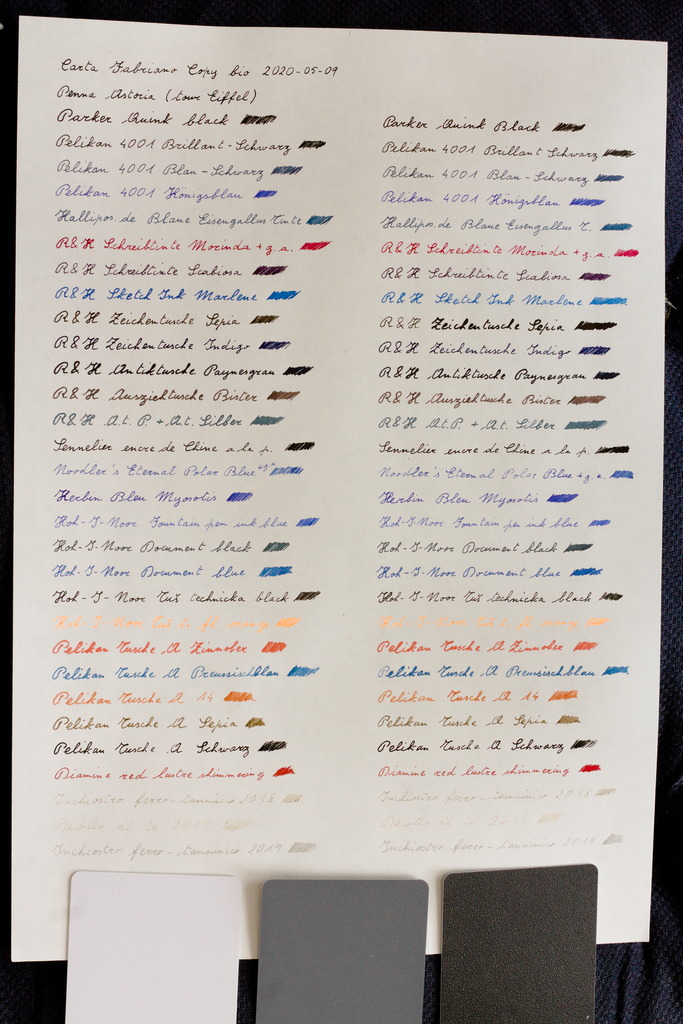 Carta Fabriano Copy bio 2020-05-09
Penna Astoria (tour Eiffel)
Parker Quink black
Pelikan 4001 Brillant-Schwarz
Pelikan 4001 Blau-Schwarz
Pelikan 4001 Königsblau
Hallipos.de Blaue Eisengallus Tinte
R&K Schreibtinte Morinda + g.a.
R&K Schreibtinte Scabiosa
R&K Sketch Ink Marlene
R&K Zeichentusche Sepia
R&K Zeichentusche Indigo
R&K Antiktusche Paynesgrau
R&K Ausziehtusche Bister
R&K A.t. P. + A.t. Silber
Sennelier encre de Chine a la p.
Noodler's Eternal Polar Blue
Herbin Bleu Myosotis
Koh-I-Noor Fountain pen ink blue
Koh-I-Noor Document black
Koh-I-Noor Document blue
Koh-I-Noor Tuš technicka black
Koh-I-Noor Tuš
Pelikan Tusche A Zinnober
Pelikan Tusche A Preussischblau
Pelikan Tusche A 14
Pelikan Tusche A Sepia
Pelikan Tusche A Schwarz
Diamine red lustre shimmering
Inchiostro ferro-tannnico 2018
Decotto di tè 2019
Inchiostro ferro-tannnico 2019
Parker Quink Black
Pelikan 4001 Brillant Schwarz
Pelikan 4001 Blau-Schwarz
Pelikan 4001 Königsblau
Hallipos.de Blaue Eisengallus T.
R&K Schreibtinte Morinda + g.a.
R&K Schreibtinte Scabiosa
R&K Sketch Ink Marlene
R&K Zeichentusche Sepia
R&K Zeichentusche Indigo
R&K Antiktusche Paynesgrau
R&K Ausziehtusche Bister
R&K A.t.P. + A.t. Silber
Sennelier encre de Chine a la p.
Noodler's Eternal Polar Blue + g.a.
Herbin Bleu Myosotis
Koh-I-Noor Fountain pen ink blue
Koh-I-Noor Document black
Koh-I-Noor Document blue
Koh-I-Noor Tuš technicka black
Koh-I-Noor Tuš
Pelikan Tusche A Zinnober
Pelikan Tusche A Preussischblau
Pelikan Tusche A 14
Pelikan Tusche A Sepia
Pelikan Tusche A Schwarz
Diamine red lustre shimmering
Inchiostro ferro-tannnico 2018
Decotto di tè 2019
Inchiostro ferro-tannnico 2019